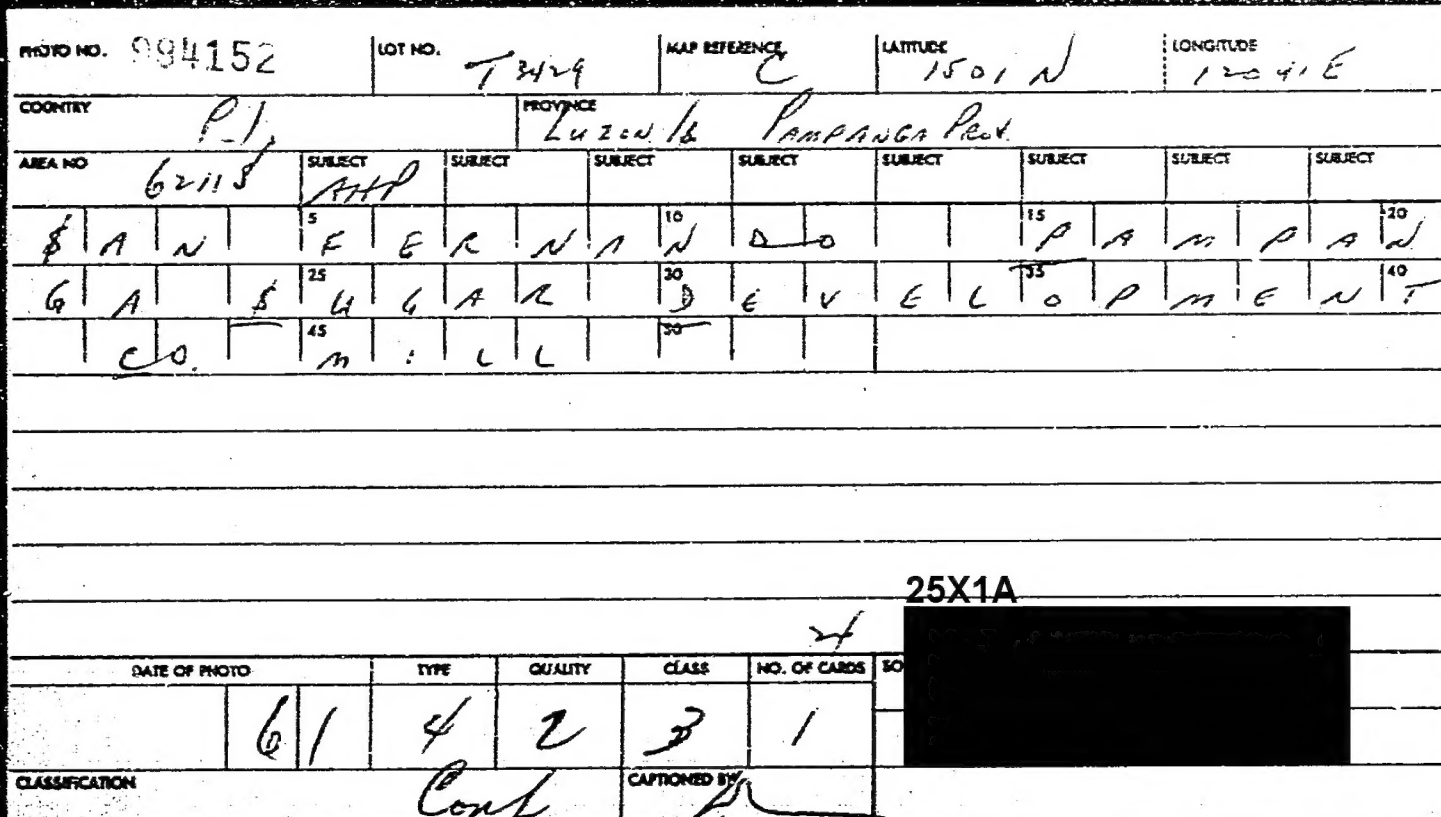 PHOTO NO. 994152 LOT NO. T 3429 MAP REFERENCE C LATITUDE 1501 N LONGITUDE 12041 E
COUNTRY P.I. PROVINCE Luzon Is Pampanga Prov.
AREA NO 62115 SUBJECT AHP SUBJECT SUBJECT SUBJECT SUBJECT SUBJECT SUBJECT
5 10 15 20
$AN FERNANDO PAMPAN
25 30 35 40
GA $UGAR DEVELOPMENT
45 50
CO. MILL
25X1A
4
DATE OF PHOTO TYPE QUALITY CLASS NO. OF CARDS SO
61 4 2 3 1
CLASSIFICATION Conf CAPTIONED BY